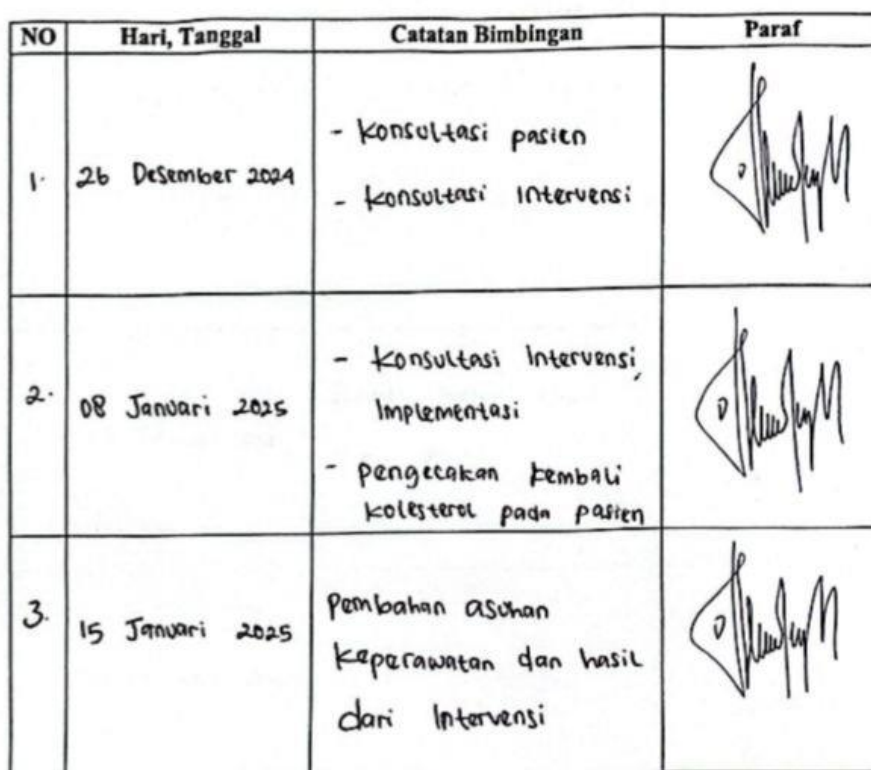 NO Hari, Tanggal Catatan Bimbingan Paraf
1. 26 Desember 2024
- Konsultasi pasien
- Konsultasi Intervensi
2. 08 Januari 2025
- Konsultasi Intervensi,
Implementasi
- pengecakan kembali
kolesterol pada pasien
3. 15 Januari 2025
pembahan asuhan
keperawatan dan hasil
dari Intervensi